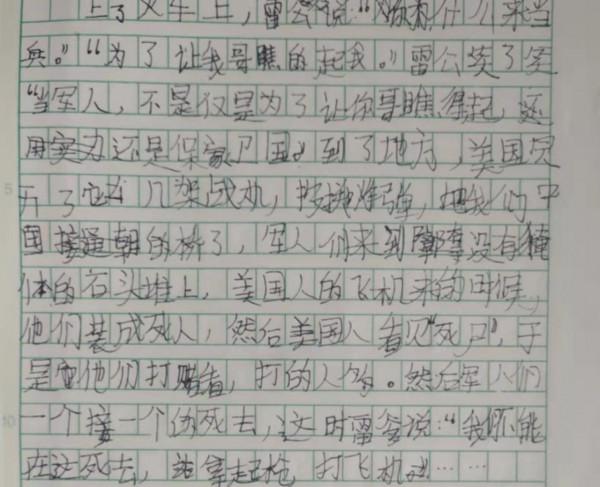 上了火车上，雷公说“你为什么来当
兵。”“为了让我哥瞧的起我。”雷公笑了笑
“当军人，不是仅是为了让你哥瞧得起，还
用实力还是保家卫国。”到了地方，美国
开了 几架战机，投掷炸弹，把我们中
国接通朝的桥了，军人们来到 没有掩
体的石头堆上，美国人的飞机来的时候，
他们装成死人，然后美国人看见“死尸”，于
是 他们打赌着，打的人多。然后军人们
一个接一个的死去，这时雷爹说：“我不能
在这死去， 拿起枪 打飞机 ……
5
10